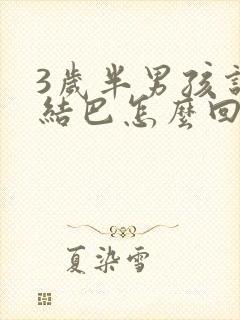 3歲半男孩
結巴怎麼回
夏染雪